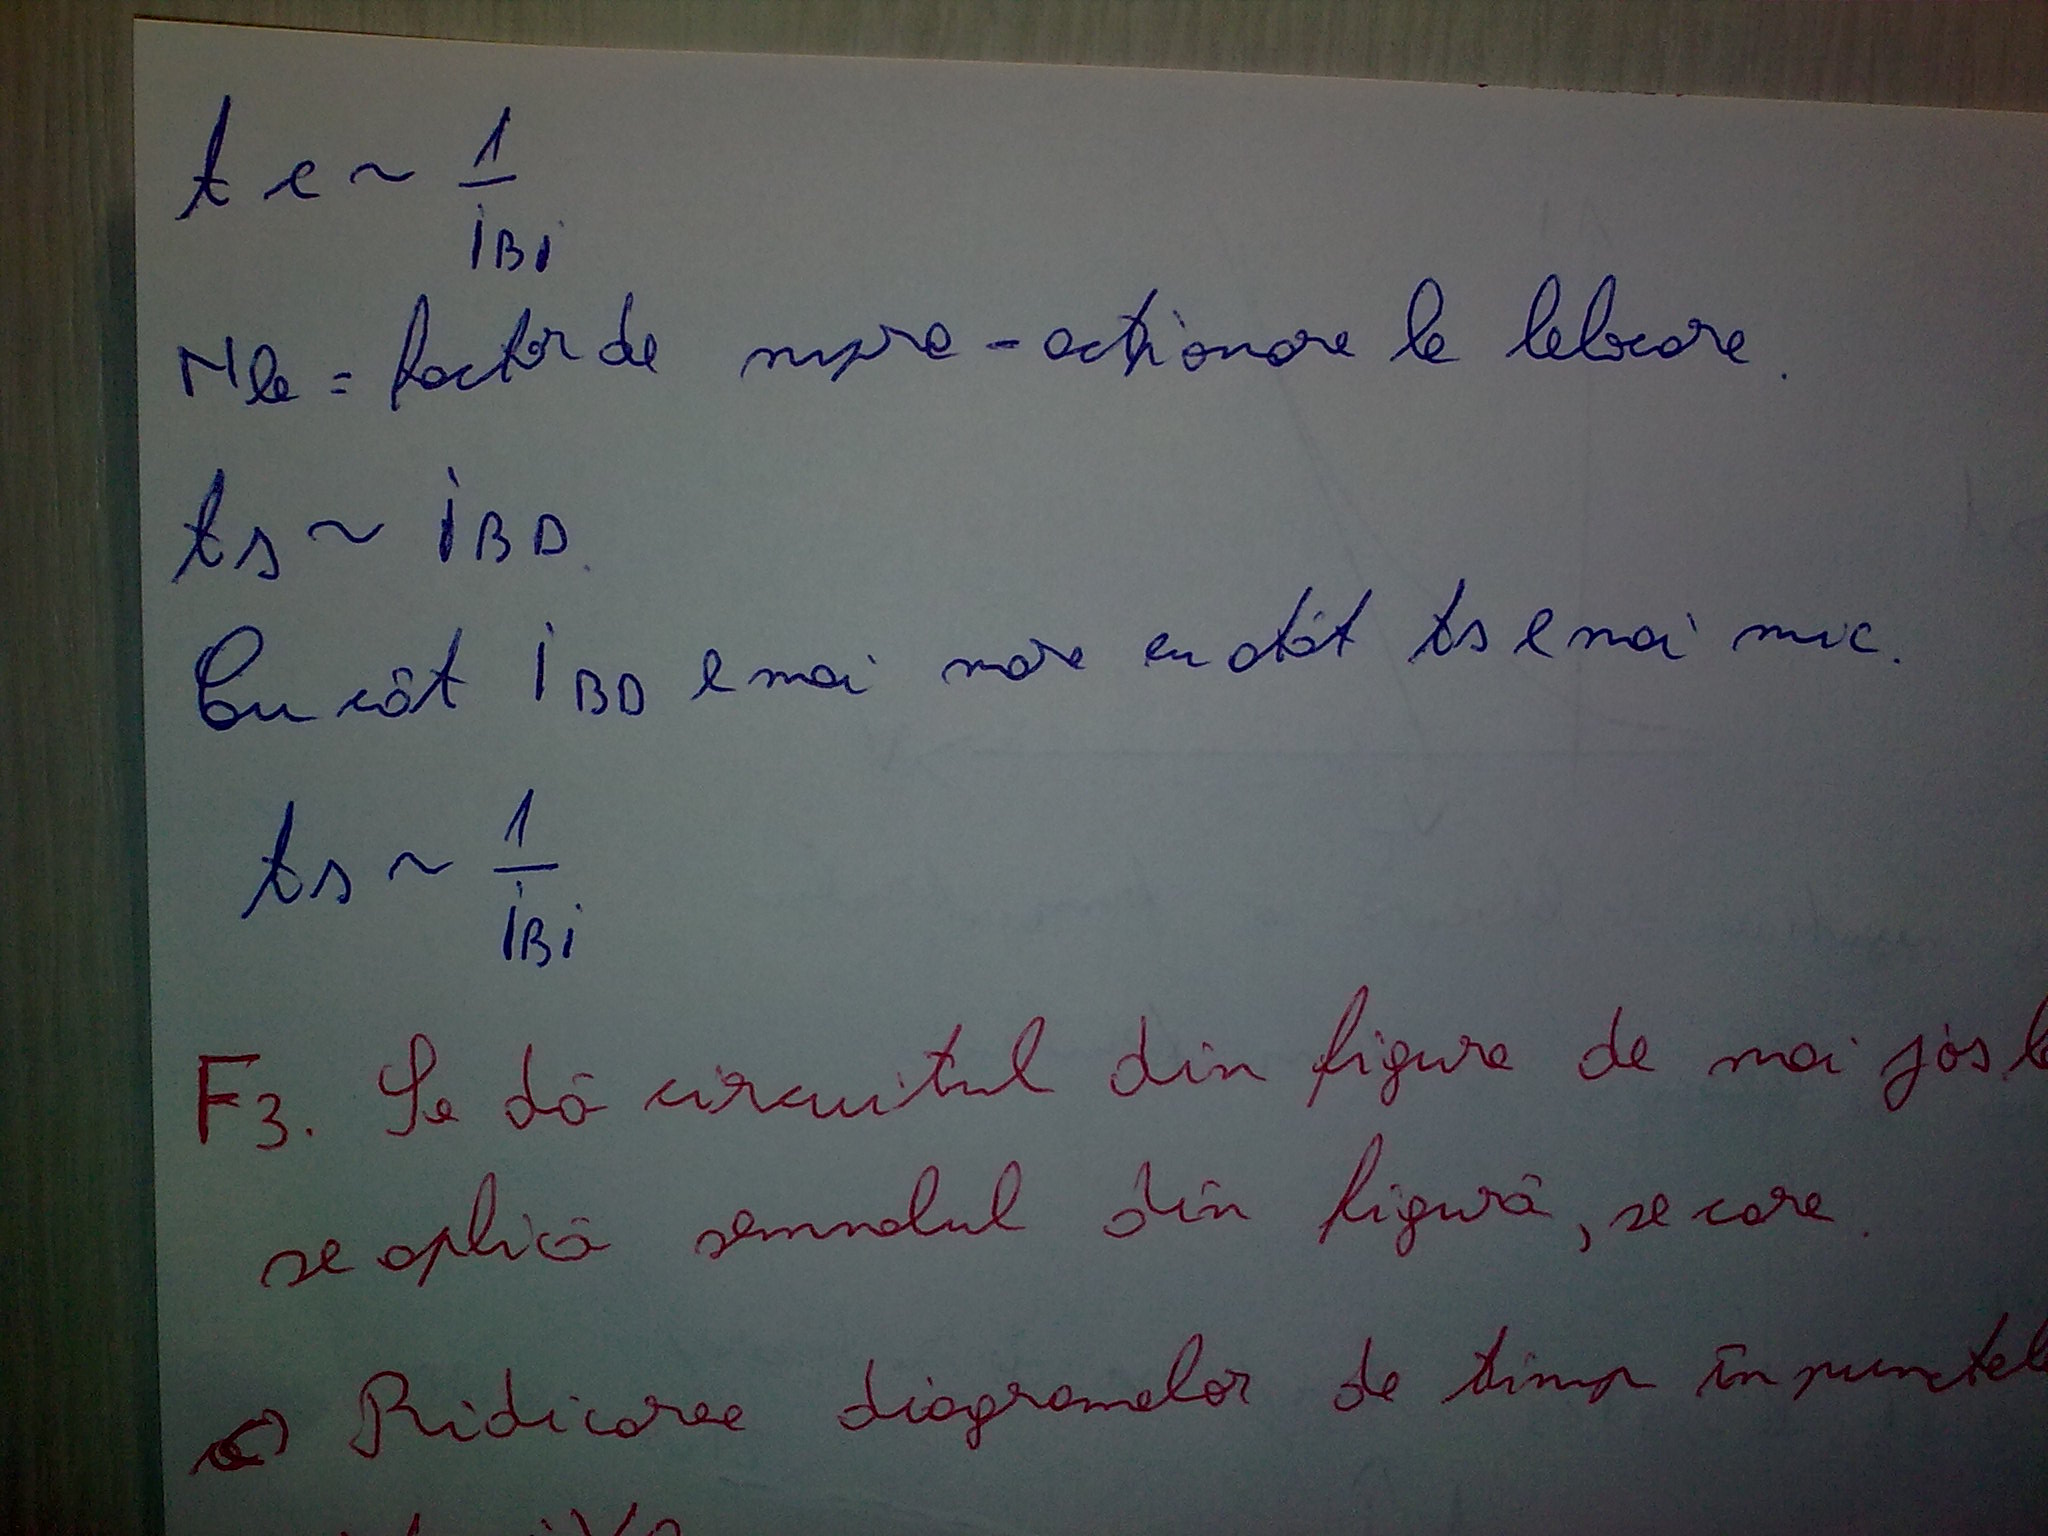 tc ~ 1/iBi
Nb = factor de supra-acționare la blocare.
ts ~ iBD.
Cu cât iBD e mai mare cu atât ts e mai mic.
ts ~ 1/iBi
F3. Se dă circuitul din figura de mai jos
se aplică semnalul din figură, se cere.
a) Ridicarea diagramelor de timp în punctel